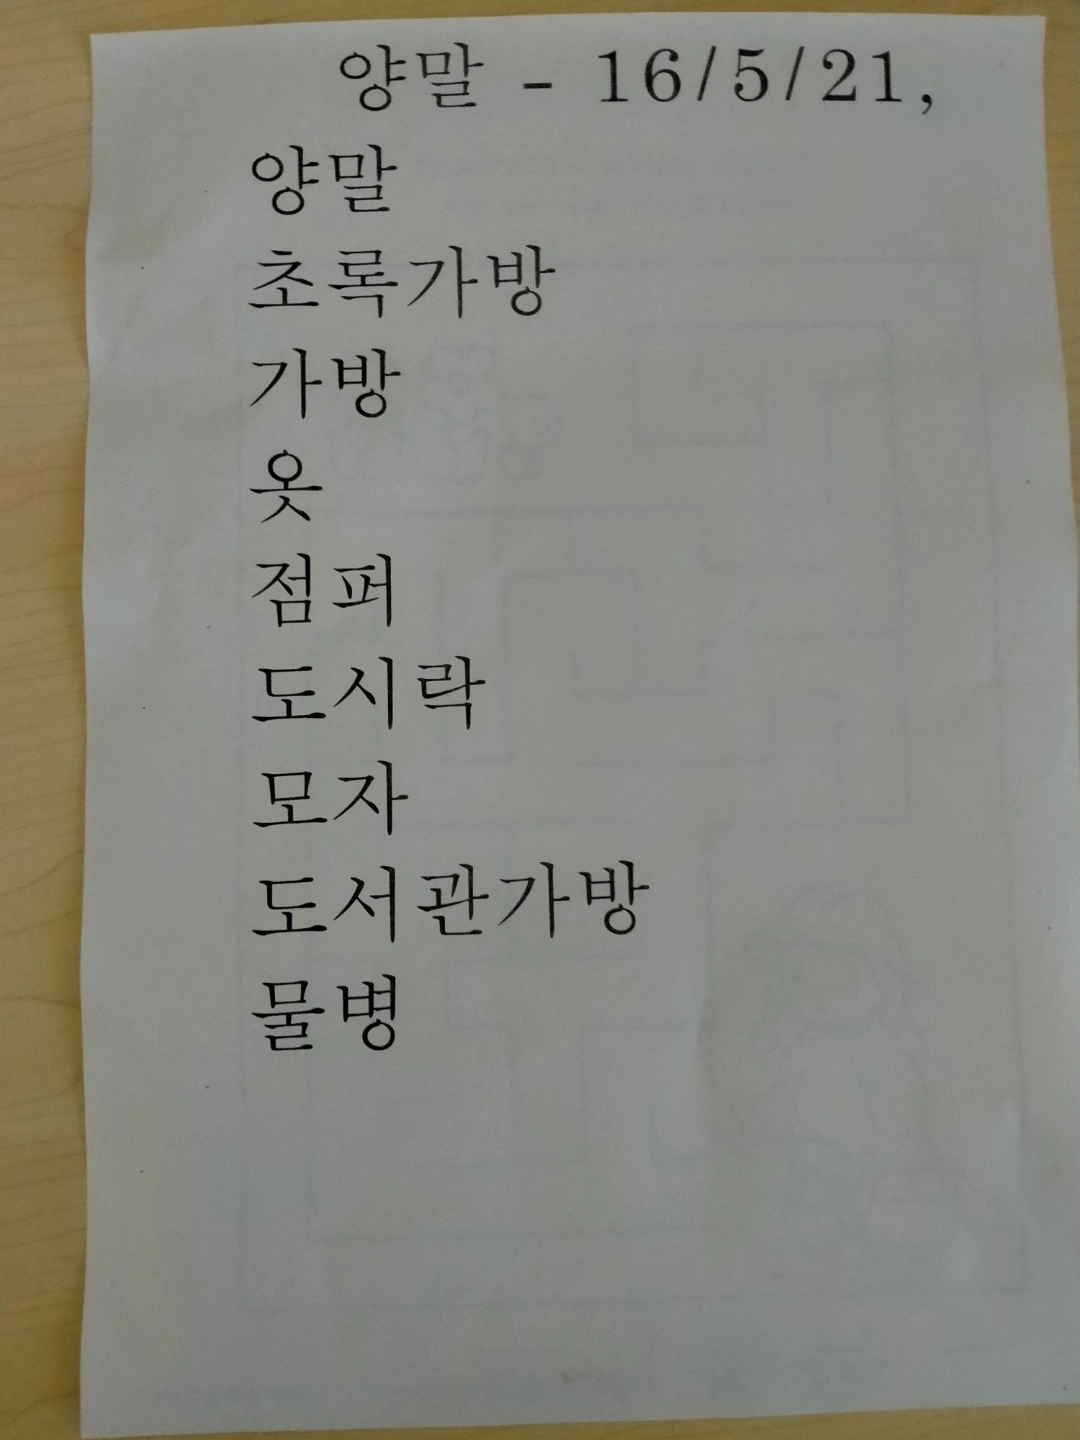 양말 - 16/5/21,
양말
초록가방
가방
옷
점퍼
도시락
모자
도서관가방
물병